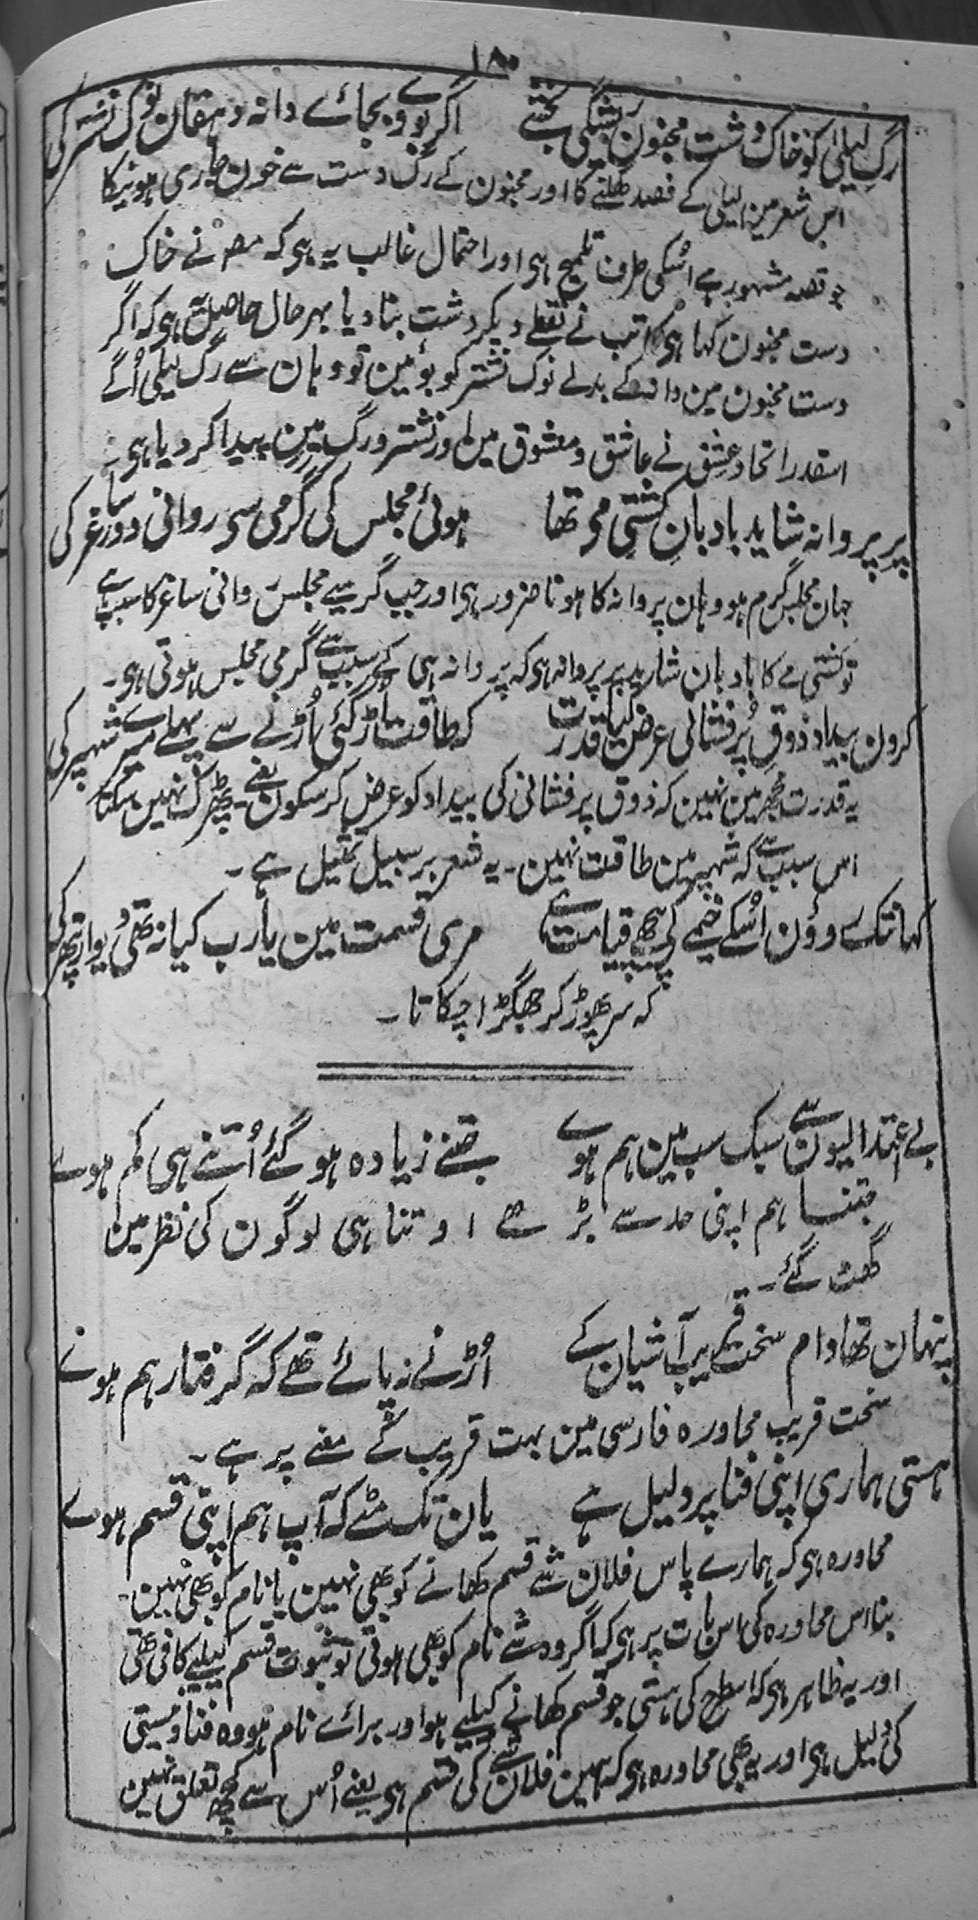 ۱۸۰
رگ لیلیٰ کو خاک دشت مجنون ریشگی بخشے اگر بووے بجائے دانہ دہقان نوک نشتر کی
اس شعر مین لیلیٰ کے فصد کھلنے کا اور مجنون کے رگ دست سے خون جاری ہونیکا
جو قصہ مشہور ہے اُسکی طرف تلمیح ہی اور احتمال غالب یہ ہی کہ مصنف نے خاک
دست مجنون کہا ہی کاتب نے نقطے دیکر دشت بنا دیا بہرحال حاصل یہ ہی کہ اگر
دست مجنون مین دانہ کے بدلے نوک نشتر کو بوئین تو وہان سے رگ لیلیٰ اُگے
اسقدر اتحاد عشق نے عاشق و معشوق مین اور نشتر و رگ مین پیدا کر دیا ہی۔
پر پروانہ شاید بادبان کشتی مے تھا ہوئی مجلس کی گرمی سے روانی دور ساغر کی
جہان مجلس گرم ہو وہان پروانہ کا ہونا ضرور ہی اور جب گرمیے مجلس روانی ساغر کا سبب ہے
تو کشتی مے کا بادبان شاید پر پروانہ ہی کہ پروانہ ہی کے سبب سے گرمی مجلس ہوتی ہی۔
کرون بیداد ذوق پُرفشانی عرض کیا قدرت کہ طاقت اُڑ گئی اُڑنے سے پہلے میرے شہپر کی
یہ قدرت مجھ مین نہین کہ ذوق پرفشانی کی بیداد کو عرض کر سکون یعنے پھڑک نہین سکتا
اس سبب سے کہ شہپر مین طاقت نہین۔ یہ شعر بر سبیل تمثیل ہے۔
کہانتک روؤن اُسکے خیمے کے پیچھے قیامت ہے مری قسمت مین یارب کیا نہ تھی دیوار پتھر کی
کہ سر پھوڑ کر جھگڑا چکاتا۔
بے اعتدالیون سے سبک سب مین ہم ہوے جتنے زیادہ ہو گئے اُتنے ہی کم ہوے
جتنا ہم اپنی حد سے بڑھے اوتنا ہی لوگون کی نظر مین
گھٹ گئے۔
پنہان تھا دام سخت قریب آشیان کے اُڑنے نہ پائے تھے کہ گرفتار ہم ہوئے
سخت قریب محاورہ فارسی مین بہت قریب کے معنے پر ہے۔
ہستی ہماری اپنی فنا پر دلیل ہے یان تک مٹے کہ آپ ہم اپنی قسم ہوے
محاورہ ہی کہ ہمارے پاس فلان شے قسم کھانے کو بھی نہین یا نام کو بھی نہین۔
بنا اس محاورہ کی اس بات پر ہی کہ اگر وہ شے نام کو بھی ہوتی تو ثبوت قسم کیلیے کافی تھی
اور یہ ظاہر ہی کہ اسطرح کی ہستی جو قسم کھانے کیلیے ہو اور برائے نام ہو وہ فنا و نیستی
کی دلیل ہی اور یہ بھی محاورہ ہی کہ ہمین فلان شے کی قسم ہی یعنے اُس سے کچھ تعلق نہین